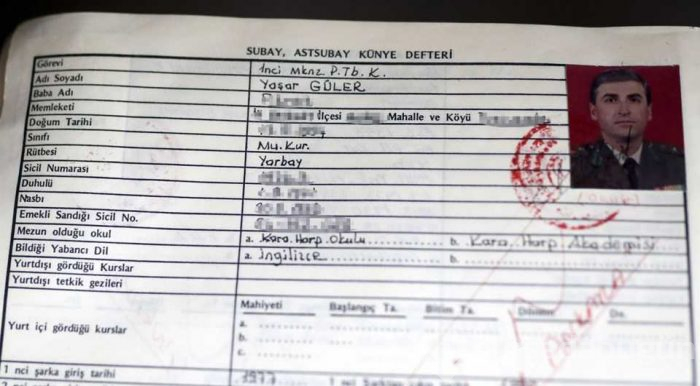 SUBAY, ASTSUBAY KÜNYE DEFTERİ
Görevi
İnci Mknz P. Tb. K.
Adı Soyadı
Yaşar GÜLER
Baba Adı
Memleketi
İlçesi Mahalle ve Köyü
Doğum Tarihi
Sınıfı
Mu. Kur.
Rütbesi
Yarbay
Sicil Numarası
Duhulü
Nasbı
Emekli Sandığı Sicil No.
Mezun olduğu okul
a. Kara Harp Okulu b. Kara Harp Akademisi
Bildiği Yabancı Dil
a. İngilizce b.
Yurtdışı gördüğü Kurslar
Yurtdışı tetkik gezileri
Mahiyeti Başlangıç Ta. Bitim Ta.
Yurt içi gördüğü kurslar
a.
b.
c.
1 nci şarka giriş tarihi
1977
ANKARA